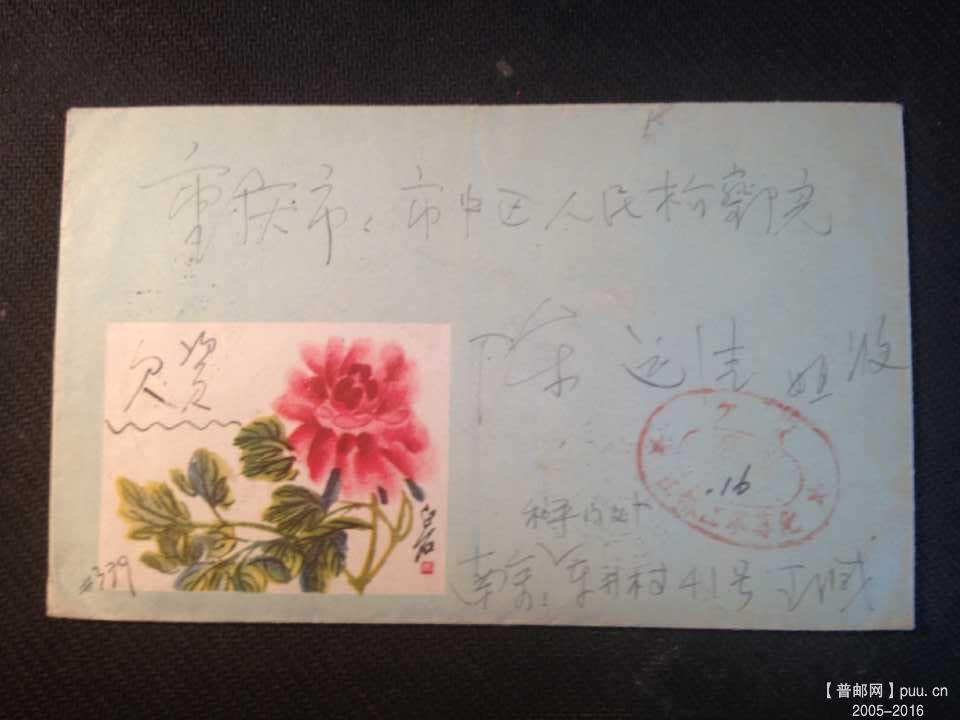 重庆市：市中区人民检察院
陈运佳 姐收
欠资
.16
白石
南京：东井村41号
#339
【普邮网】puu.cn
2005-2016